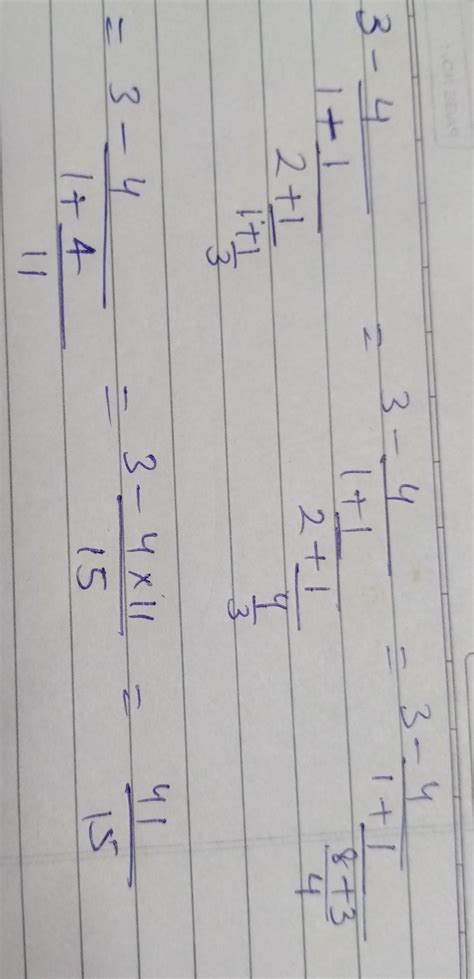 3 - 4/(1+1/(2+1/(1+1/3))) = 3 - 4/(1+1/(2+1/(4/3))) = 3 - 4/(1+1/((8+3)/4))
= 3 - 4/(1+4/11) = 3 - (4×11)/15 = 41/15